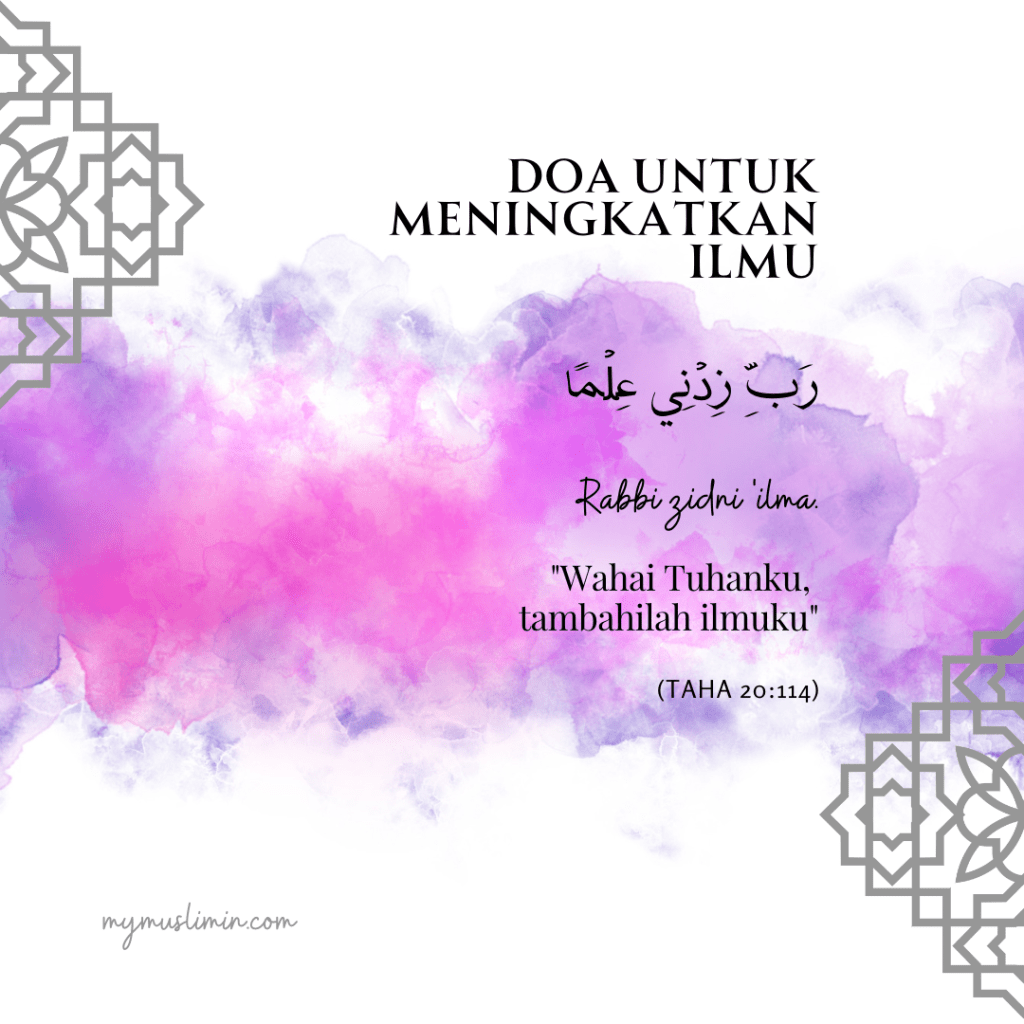 DOA UNTUK
MENINGKATKAN
ILMU
رَبِّ زِدْنِي عِلْمًا
Rabbi zidni 'ilma.
"Wahai Tuhanku,
tambahilah ilmuku"
(TAHA 20:114)
mymuslimin.com